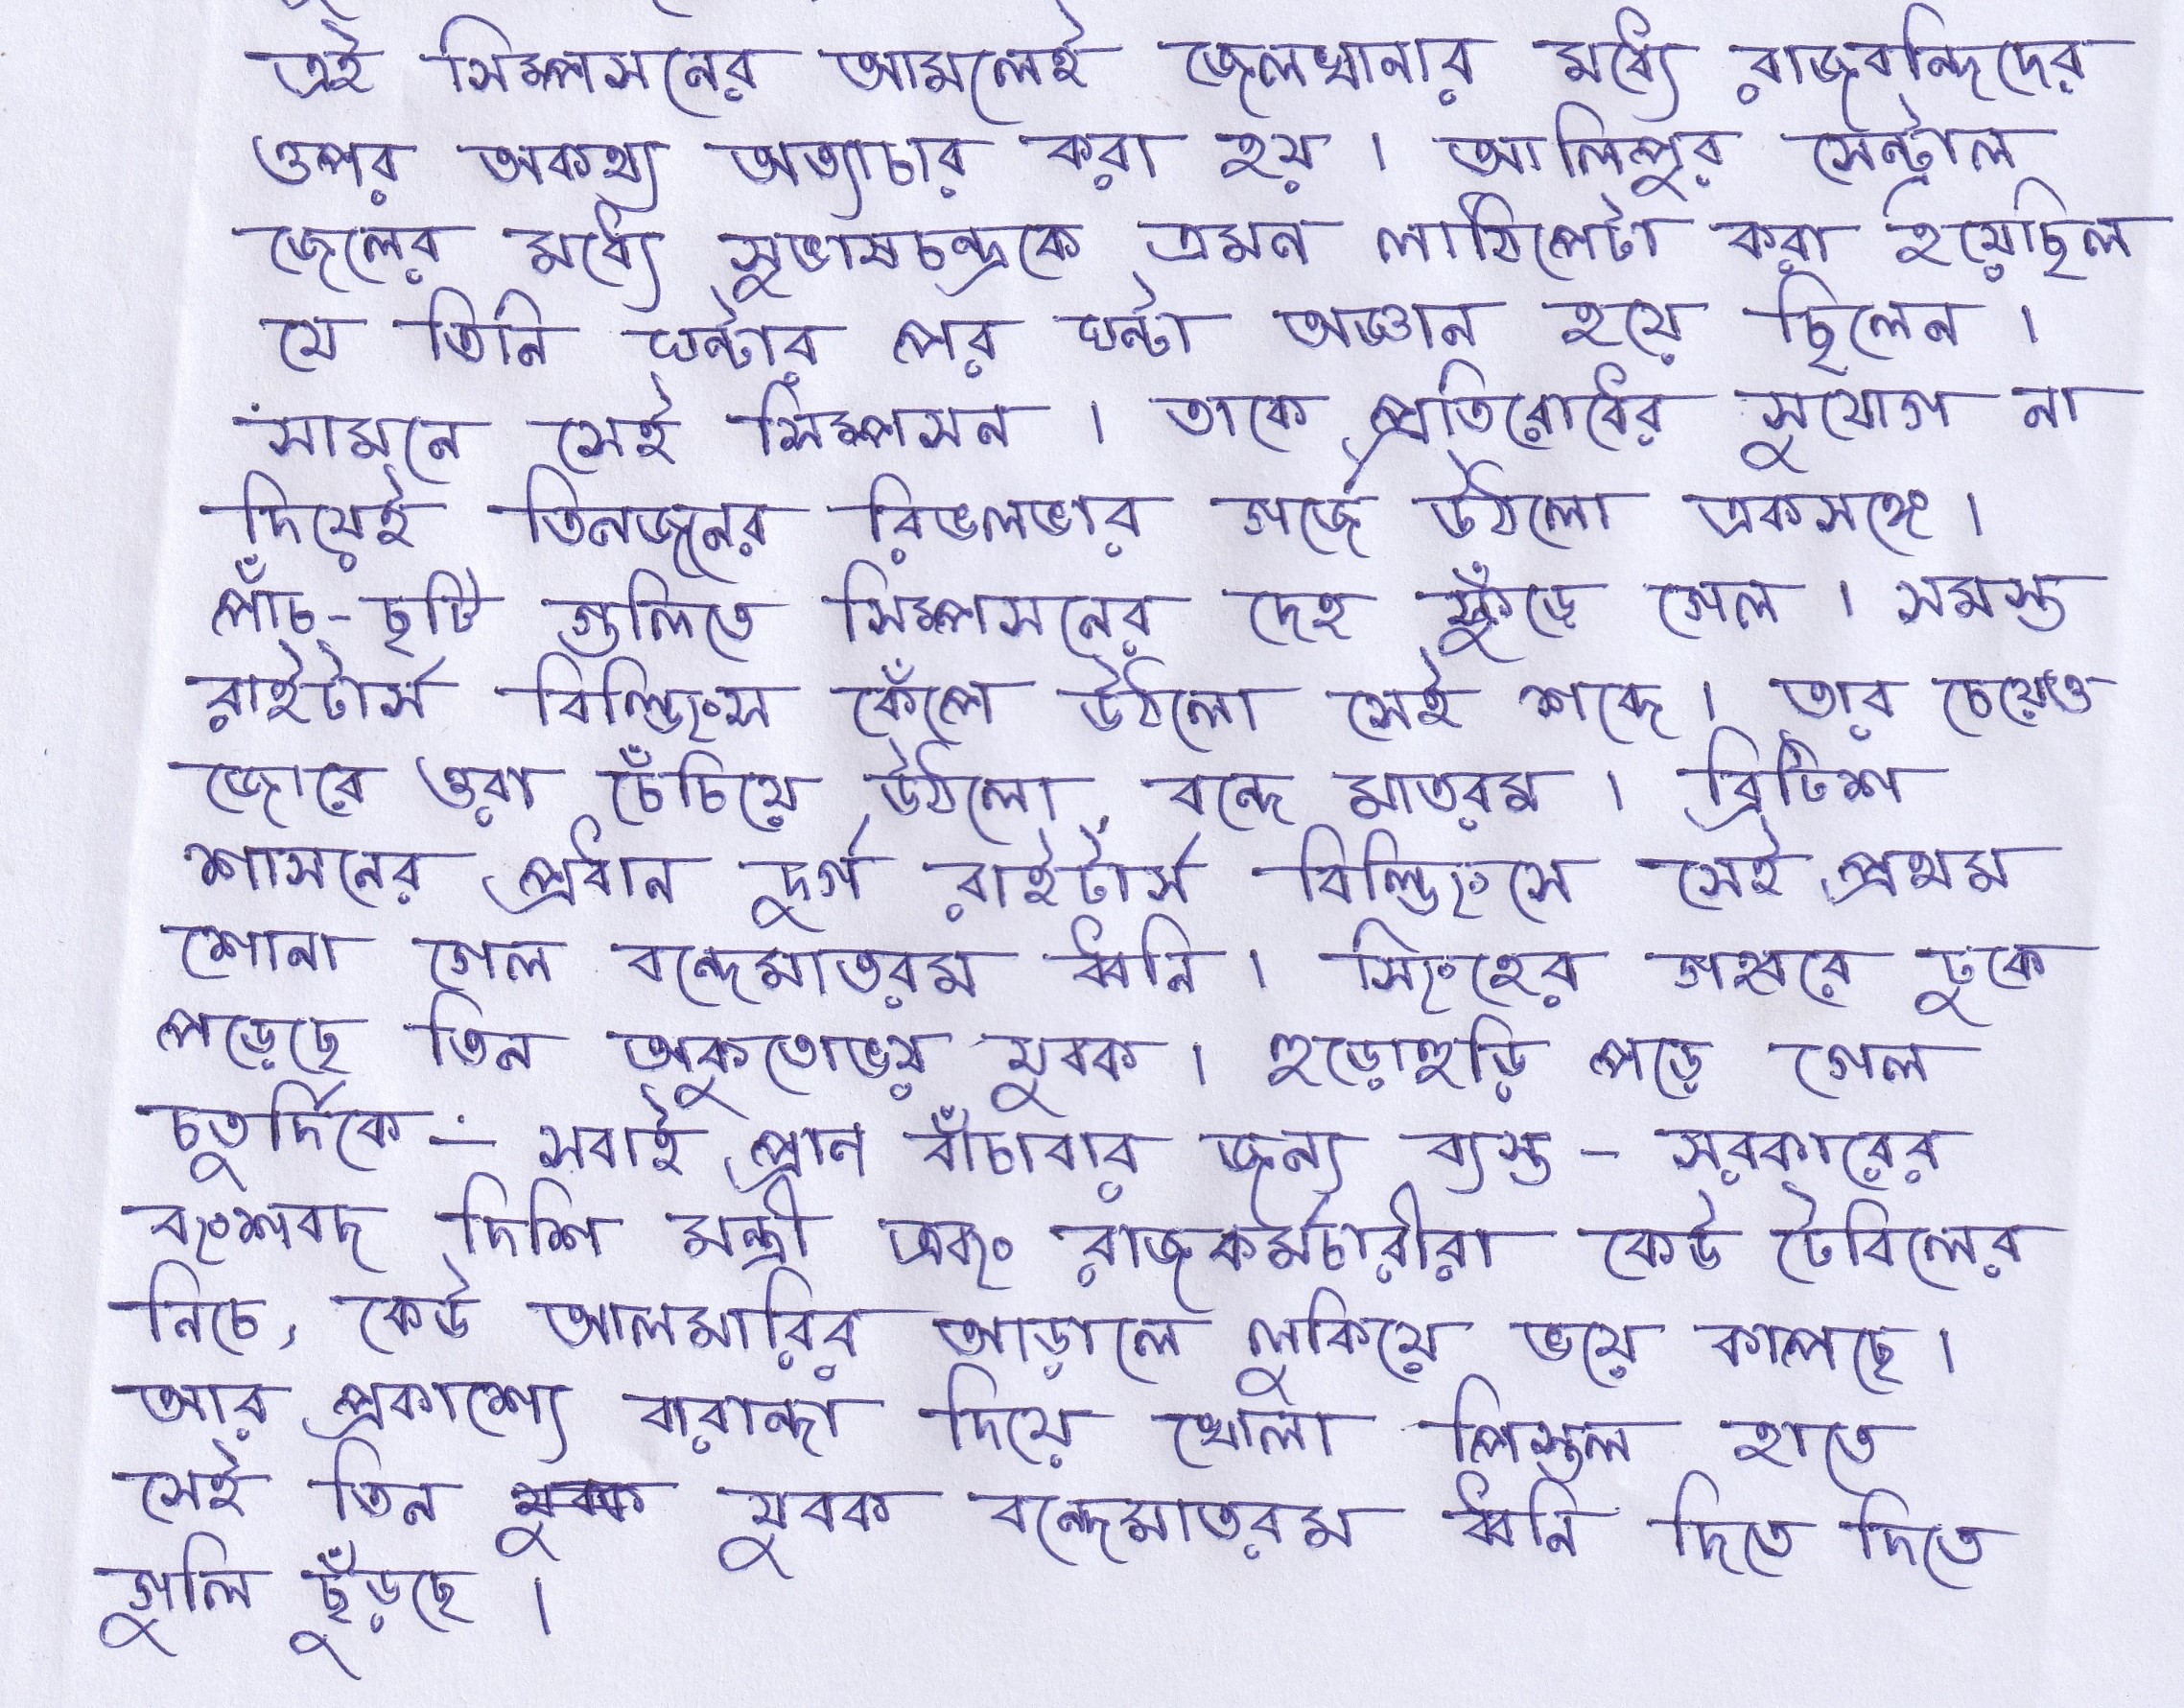 এই সিম্পসনের আমলেই জেলখানার মধ্যে রাজবন্দিদের
ওপর অকথ্য অত্যাচার করা হয়। আলিপুর সেন্ট্রাল
জেলের মধ্যে সুভাষচন্দ্রকে এমন লাঠিপেটা করা হয়েছিল
যে তিনি ঘন্টার পর ঘন্টা অজ্ঞান হয়ে ছিলেন।
সামনে সেই সিম্পসন। তাকে প্রতিরোধের সুযোগ না
দিয়েই তিনজনের রিভলভার গর্জে উঠলো একসঙ্গে।
পাঁচ-ছটি গুলিতে সিম্পসনের দেহ ফুঁড়ে গেল। সমস্ত
রাইটার্স বিল্ডিংস কেঁপে উঠলো সেই শব্দে। তার চেয়েও
জোরে ওরা চেঁচিয়ে উঠলো, বন্দে মাতরম। ব্রিটিশ
শাসনের প্রধান দুর্গ রাইটার্স বিল্ডিংসে সেই প্রথম
শোনা গেল বন্দেমাতরম ধ্বনি। সিংহের গহ্বরে ঢুকে
পড়েছে তিন অকুতোভয় যুবক। হুড়োহুড়ি পড়ে গেল
চতুর্দিকে - সবাই প্রান বাঁচাবার জন্য ব্যস্ত - সরকারের
বংশবদ দিশি মন্ত্রী এবং রাজকর্মচারীরা কেউ টেবিলের
নিচে, কেউ আলমারির আড়ালে লুকিয়ে ভয়ে কাপছে।
আর প্রকাশ্যে বারান্দা দিয়ে খোলা পিস্তল হাতে
সেই তিন যুবক যুবক বন্দেমাতরম ধ্বনি দিতে দিতে
গুলি ছুঁড়ছে।